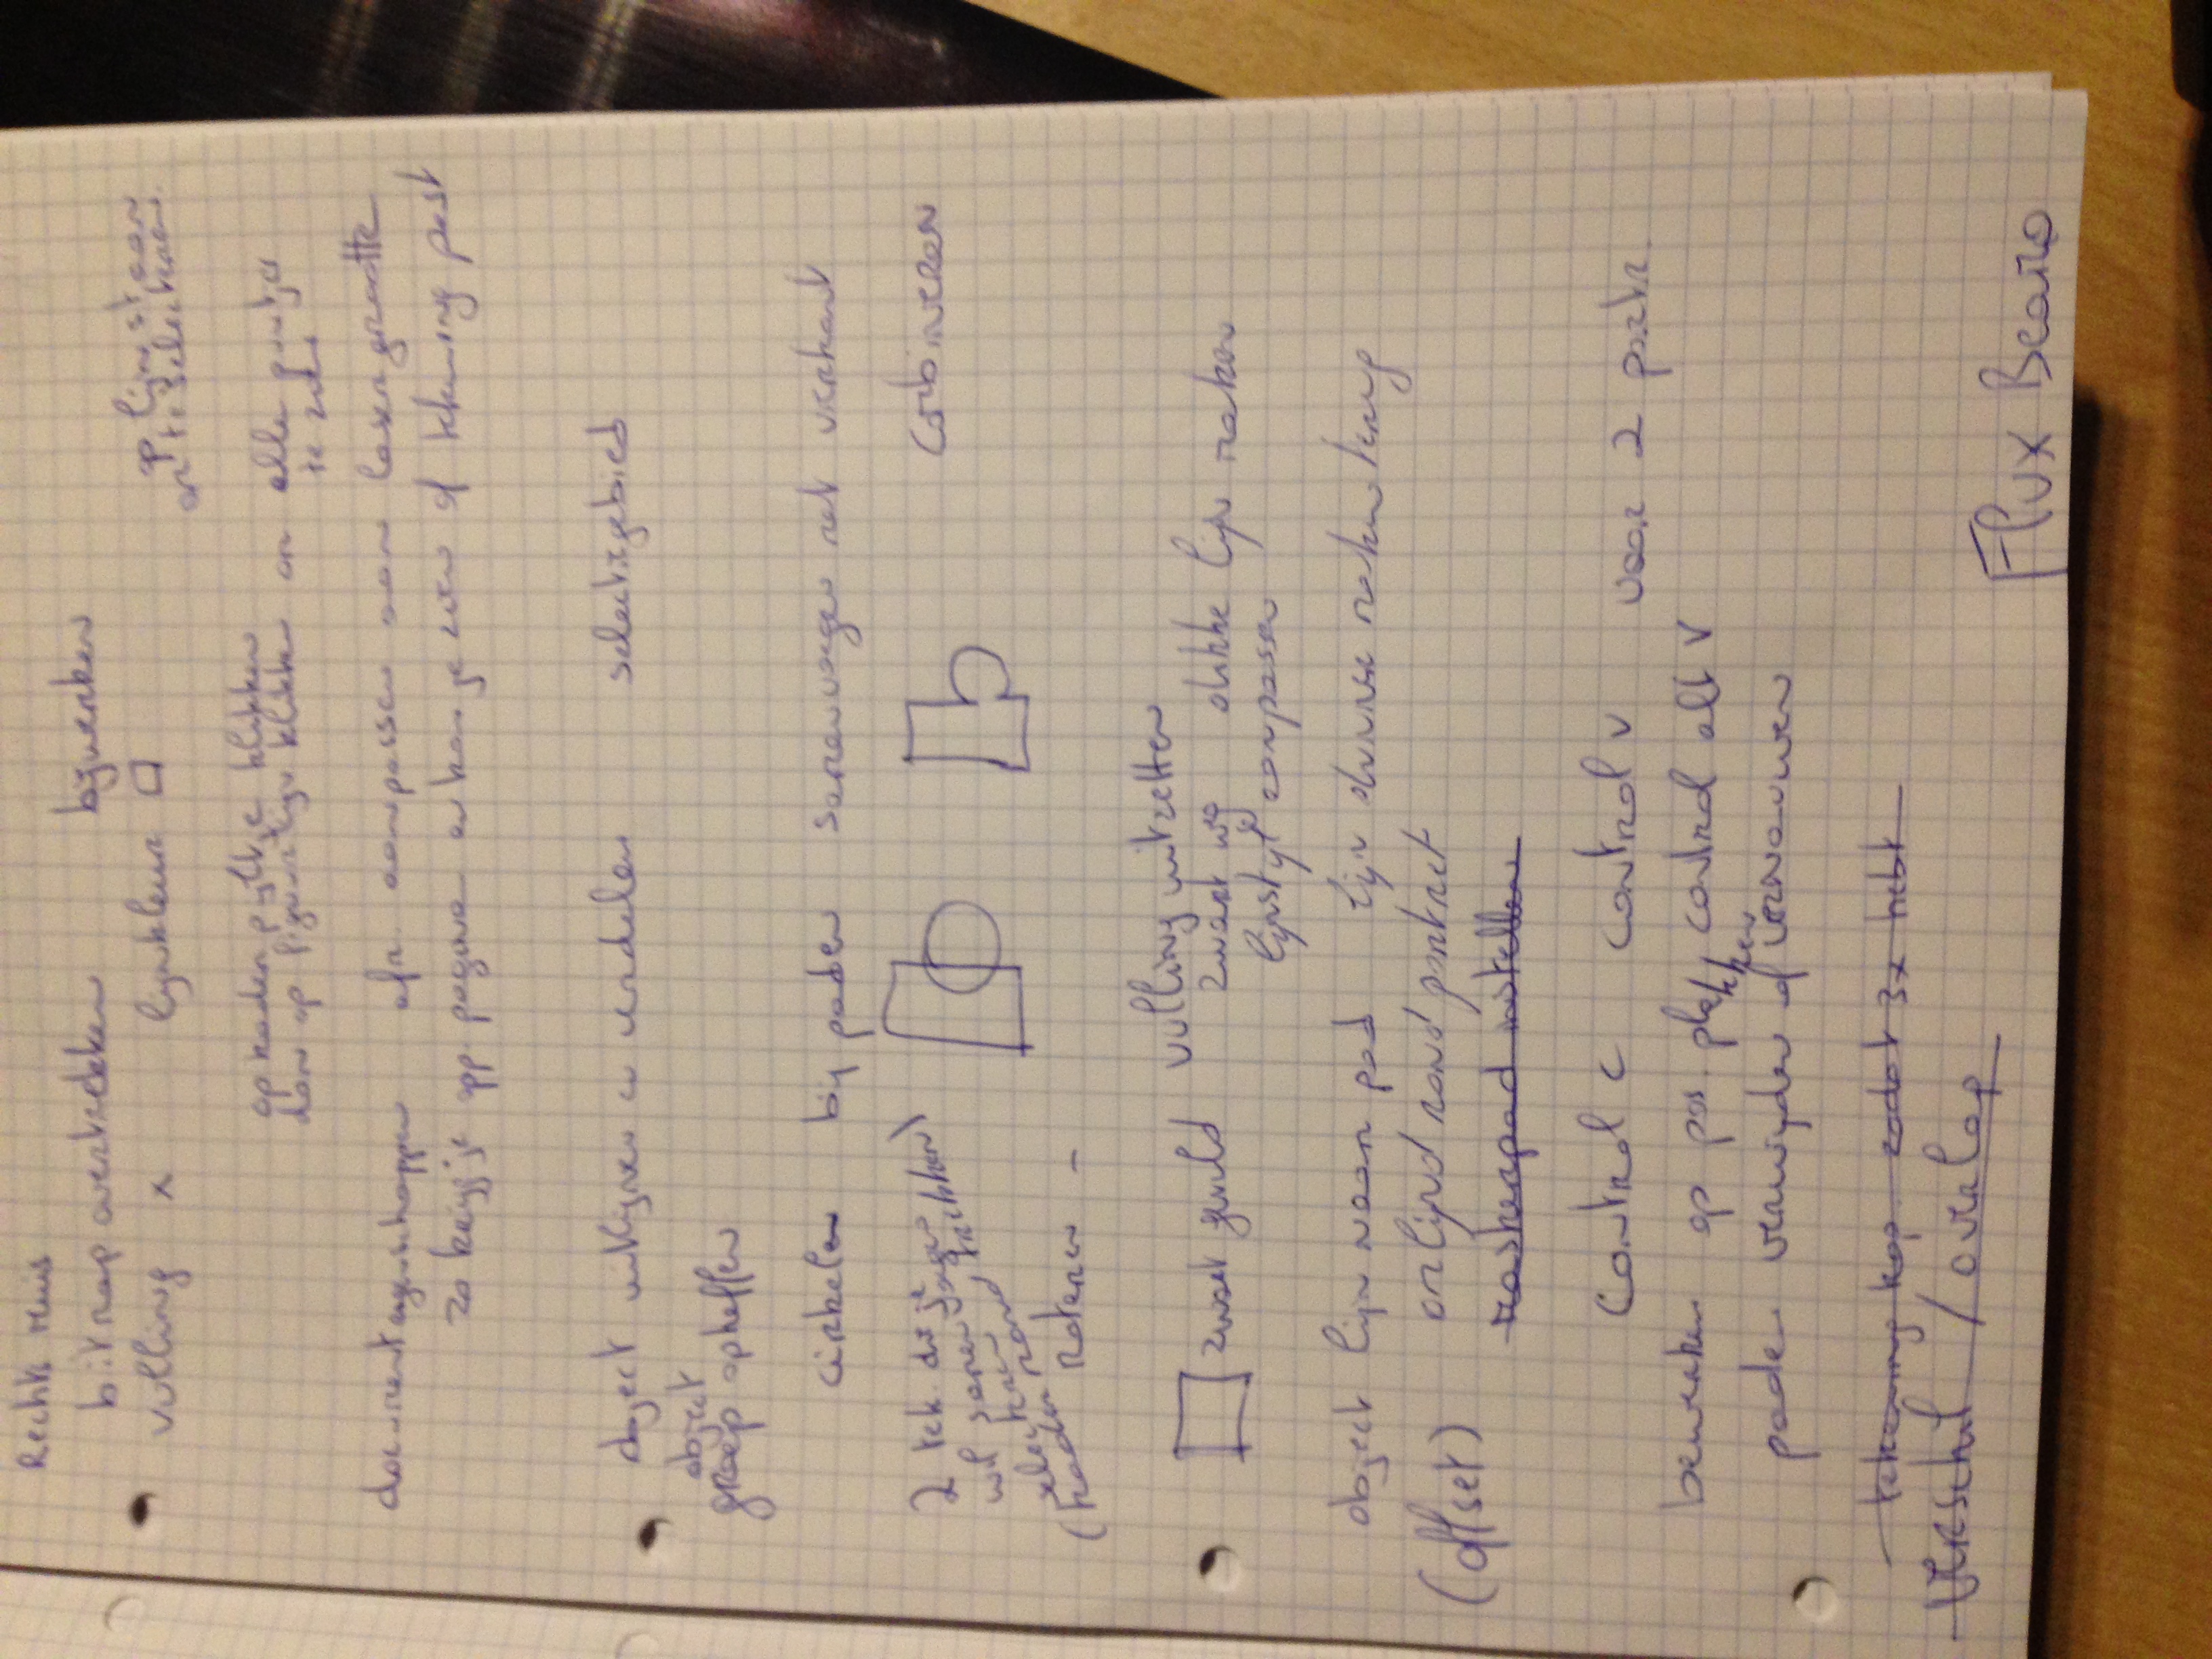 Rechts muis
bitmap overtrekken bijwerken
vulling x lijnkleur
op lijn staan
om te selecteren
op kader pijltje klikken
dan op figuurlijn klikken om alle puntjes
te zien
documenteigenschappen afm. aanpassen aan laser grootte
zo krijg je opp. pagina en kan je zien of tekening past
object uitlijnen en verdelen selectiegebied
object
groep opheffen
cirkelen bij paden samenvoegen met vierkant
2 tek. die je
wil samenvoegen
selecteren
(kader rond trekken)
combineren
roteren -
vulling uitzetten
zwart gevuld zwart weg dikke lijn maken
lijnstijl aanpassen
object lijn naar pad lijn dunner maken terug
(offset) omlijnd rond portret
maskerpad instellen
Control C control V voor 2 portr.
bewerken op pos. plakken control alt V
paden verwijden of vernauwen
tekening kop. zodat 3x hebt
Verschil / overlap
Flux Beamo